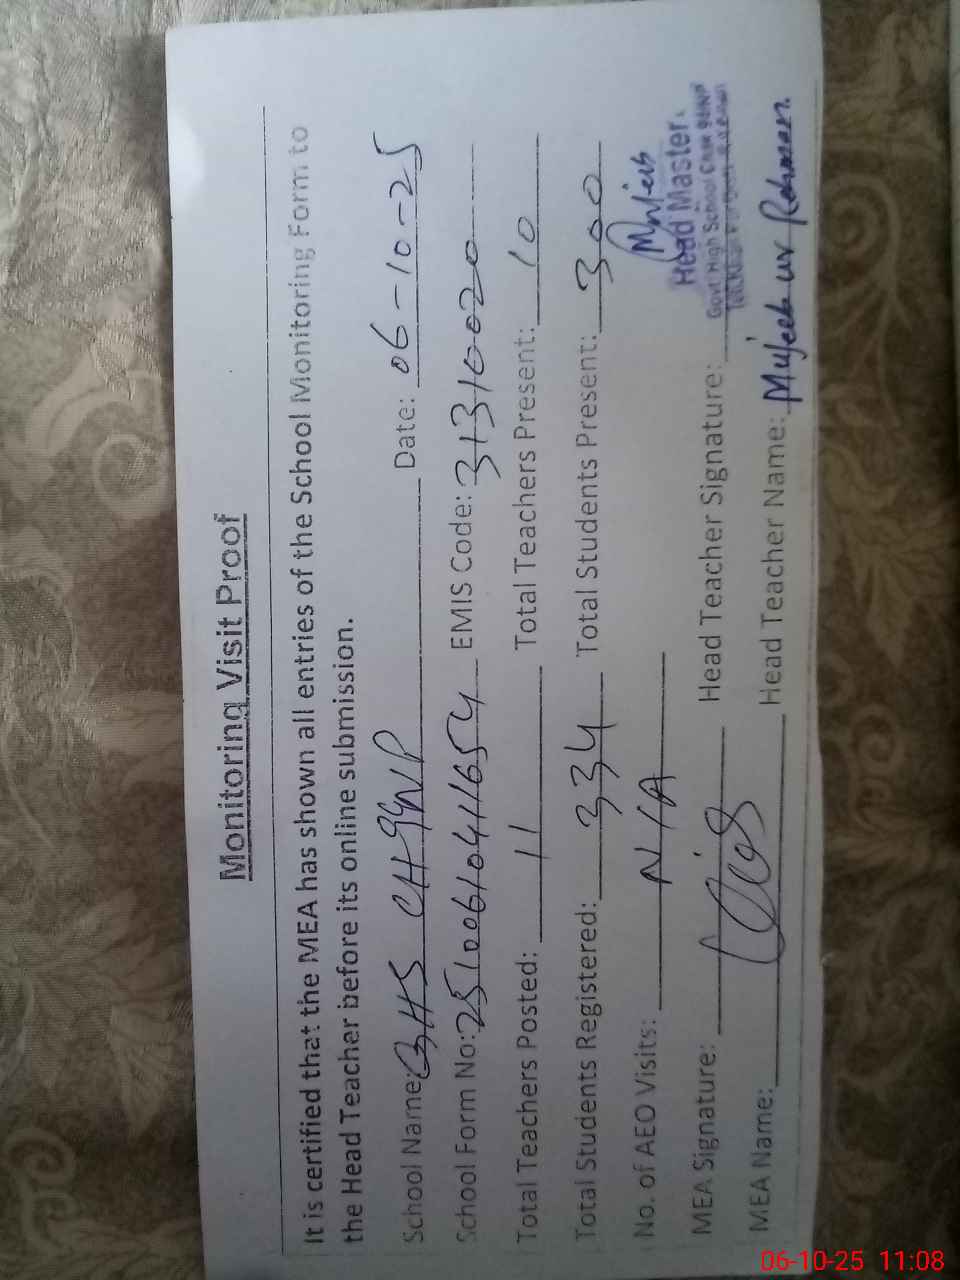 Monitoring Visit Proof
It is certified that the MEA has shown all entries of the School Monitoring Form to
the Head Teacher before its online submission.
School Name: GHS CH99NP Date: 06-10-25
School Form No: 25100610411654 EMIS Code: 31310020
Total Teachers Posted: 11 Total Teachers Present: 10
Total Students Registered: 334 Total Students Present: 300
No. of AEO Visits: N/A
Mujeeb
Head Master.
MEA Signature: Head Teacher Signature: Govt High School Chak 99NP
MEA Name: Head Teacher Name: Mujeeb ur Rehman.
06-10-25 11:08